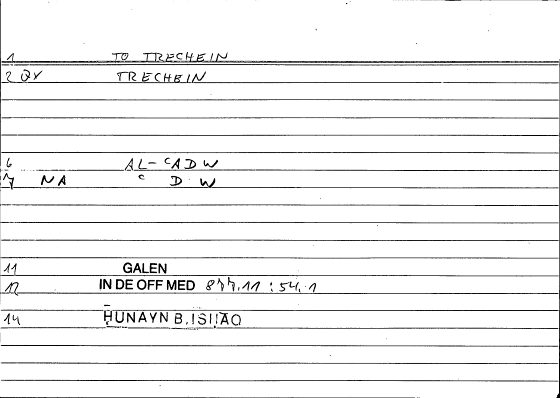 1 TO TRECHEIN
2 QV TRECHEIN
6 AL-ᶜADW
7 NA ᶜ D W
11 GALEN
12 IN DE OFF MED 877.11 : 54.1
14 ḤUNAYN B. ISḤĀQ